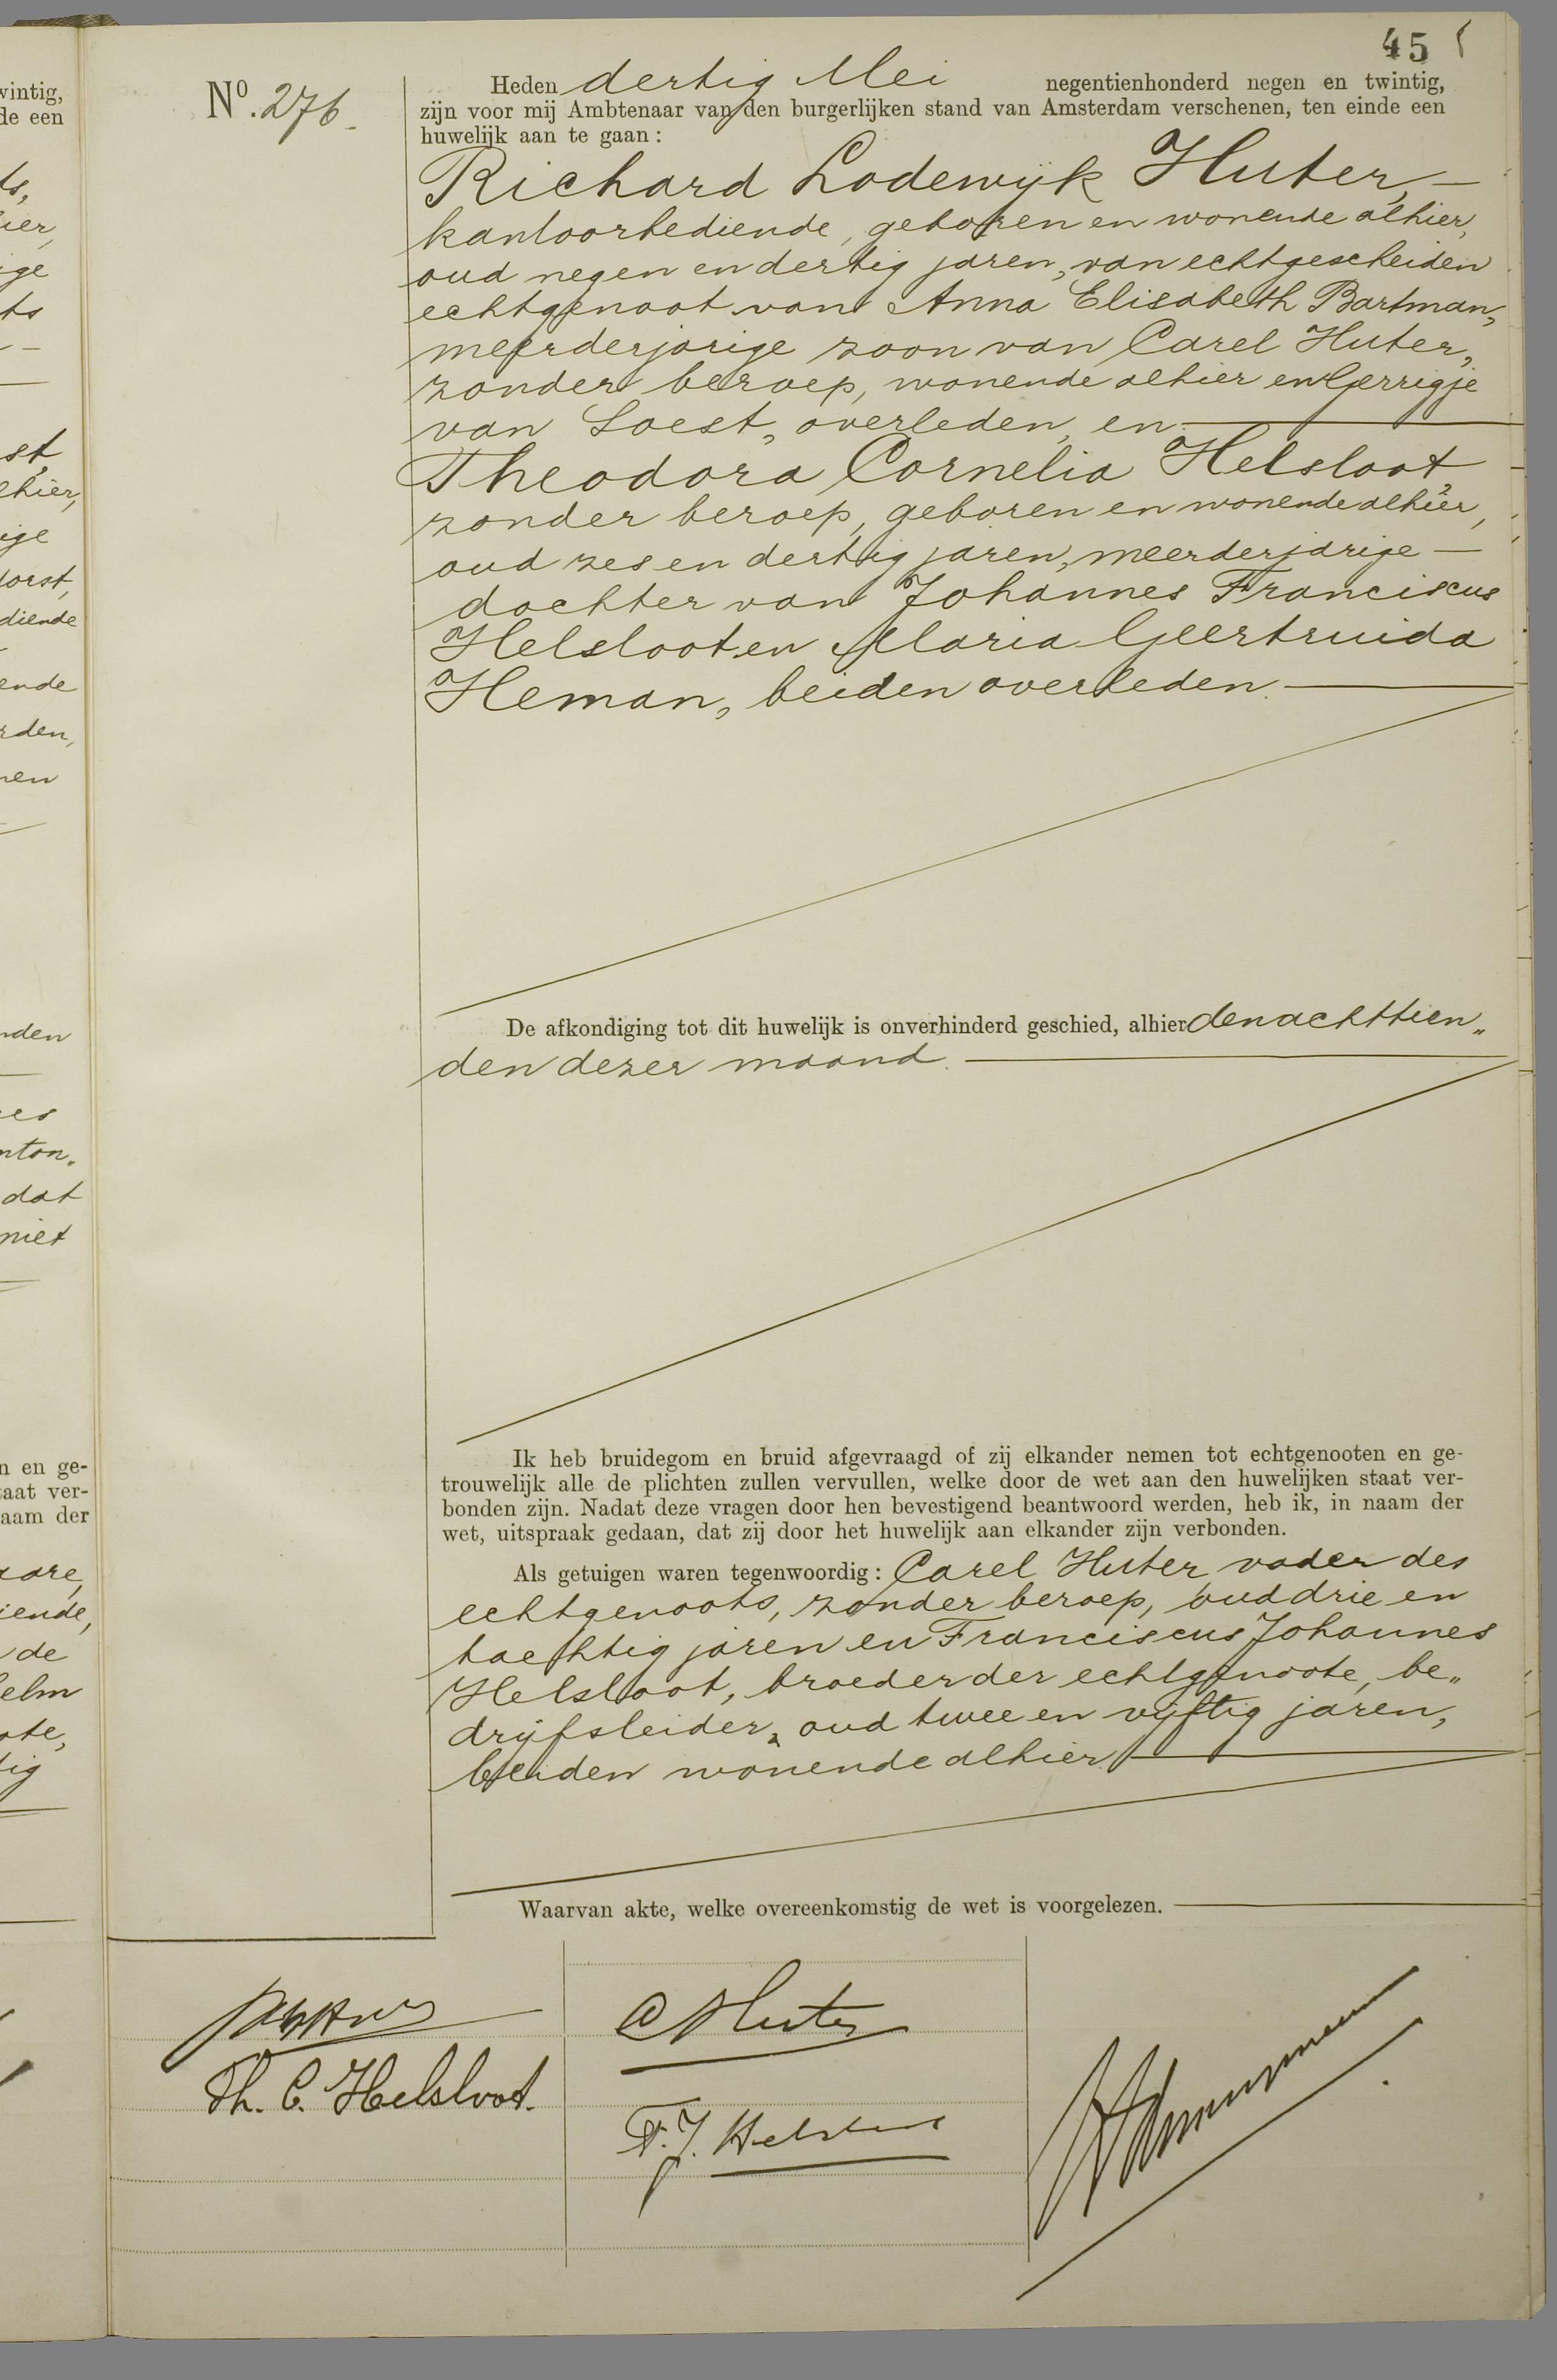 45
No. 276
Heden dertig Mei negentienhonderd negen en twintig,
zijn voor mij Ambtenaar van den burgerlijken stand van Amsterdam verschenen, ten einde een
huwelijk aan te gaan:
Richard Lodewijk Huter,
kantoorbediende, geboren en wonende alhier,
oud negen en dertig jaren, van echt gescheiden
echtgenoot van Anna Elisabeth Bartman,
meerderjarige zoon van Carel Huter,
zonder beroep, wonende alhier en Gerrigje
van Soest, overleden, en
Theodora Cornelia Helsloot,
zonder beroep, geboren en wonende alhier,
oud zes en dertig jaren, meerderjarige
dochter van Johannes Franciscus
Helsloot en Maria Geertruida
Heman, beiden overleden.
De afkondiging tot dit huwelijk is onverhinderd geschied, alhier den achttien„
den dezer maand.
Ik heb bruidegom en bruid afgevraagd of zij elkander nemen tot echtgenooten en ge-
trouwelijk alle de plichten zullen vervullen, welke door de wet aan den huwelijken staat ver-
bonden zijn. Nadat deze vragen door hen bevestigend beantwoord werden, heb ik, in naam der
wet, uitspraak gedaan, dat zij door het huwelijk aan elkander zijn verbonden.
Als getuigen waren tegenwoordig: Carel Huter vader des
echtgenoots, zonder beroep, oud drie en
tachtig jaren en Franciscus Johannes
Helsloot, broeder der echtgenoote, be„
drijfsleider, oud twee en vijftig jaren,
beiden wonende alhier.
Waarvan akte, welke overeenkomstig de wet is voorgelezen.
C Huter
Th. C. Helsloot.
F. J. Helsloot